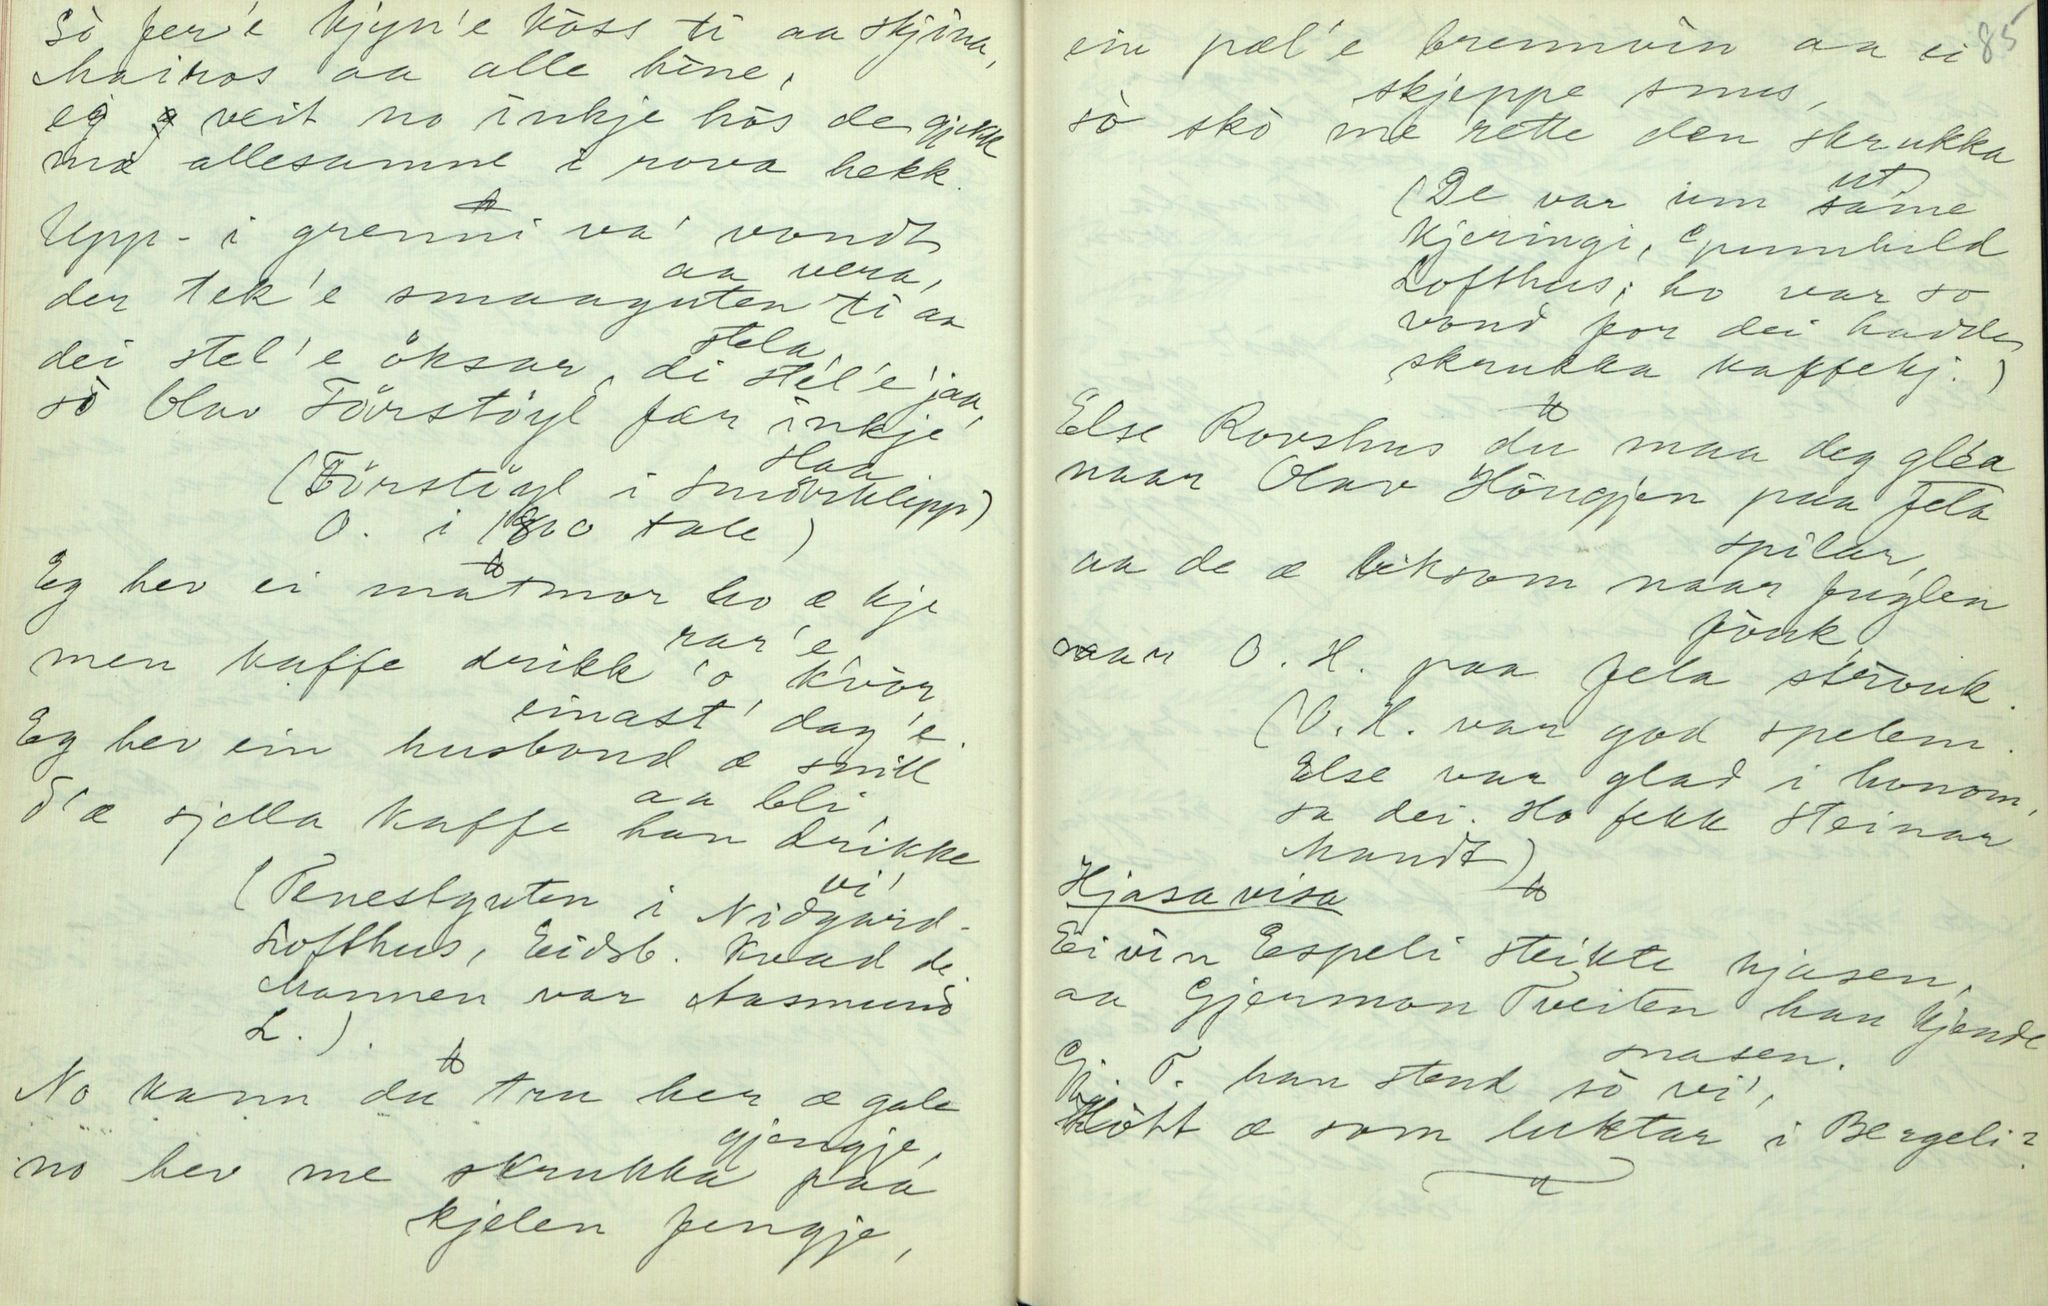 Sò fer'e kjyn'e kòss ti aa skjina,
Mairos aa alle hine,
eg veit no inkje hòs de gjekk
mæ allesamne i rova hekk.
Upp- i grenni va' vondt
aa vera,
der tek'e smaaguten ti aa
stela
dei stel'e òksar, di stel'e jaa,
sò Olav Förstöyl fær inkje
slaa
(Förstöyl i Smörklepp)
O. i 1800 tale)
Eg hev ei matmor ho æ kje
rar'e
men kaffe drikk 'o kvòr
einast' dag'e.
Eg hev ein husbond æ snill
aa bli
d'æ sjella kaffe han drikke
vi'
(Tenestguten i Nidgard-
Lofthus, Eidsb. kvad de.
Mannen var Aasmund
L.).
No kann du tru her æ gale
gjengje,
no hev me skrukka paa
kjelen fengje,
85
ein pæl'e brennvin aa ei
skjeppe snus,
sò skò me rette den skrukka
ut
(De var um same
kjeringi, Gunnhild
Lofthus; ho var so
vond for dei hadde
skrukka kaffekj.)
Else Rovshus du maa deg gléa
naar Olav Höugjen paa fela
spilar,
aa de æ liksom naar fuglen
föuk,
naar O. H. paa fela ströuk.
(O. H. var god spelem.
Else var glad i honom,
sa dei. Ho fekk Steinar
Mandt)
Hjasavisa
Eivin Espeli steikte hjasen,
aa Gjermon Tveiten han kjende
snasen.
Gj. T. han stend sò vi',
Hòtt æ som luktar i Bergeli?